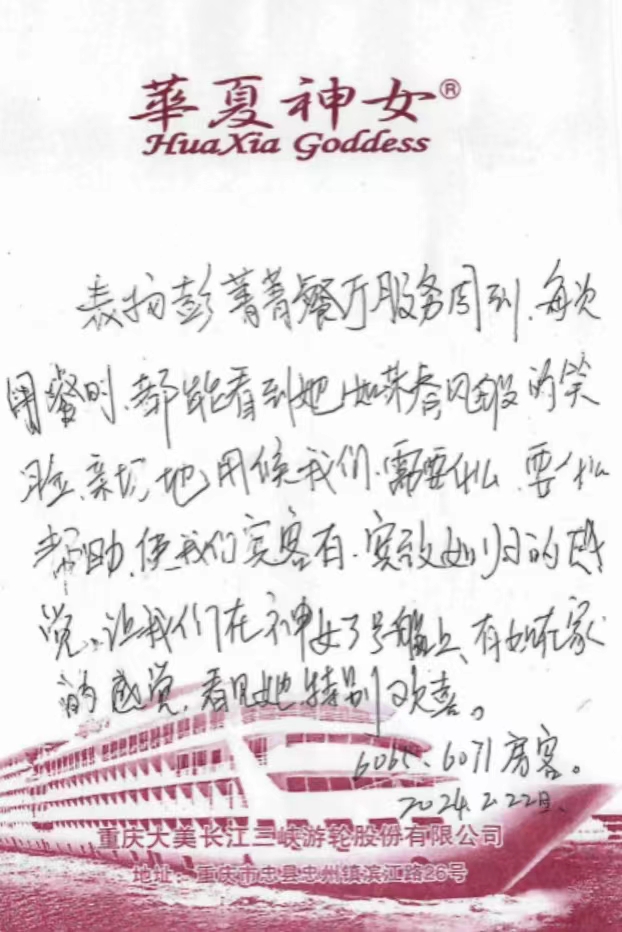 華夏神女®
HuaXia Goddess
表扬彭菁菁餐厅服务周到、每次
用餐时、都能看到她如沐春风般的笑
脸、亲切地问候我们、需要什么、要什么
帮助、使我们宾客有、宾至如归的感
觉、让我们在神女3号船上、有如在家
的感觉、看见她特别欢喜。
6071房客。
2024.2.22日、
重庆大美长江三峡游轮股份有限公司
地址：重庆市忠县忠州镇滨江路26号